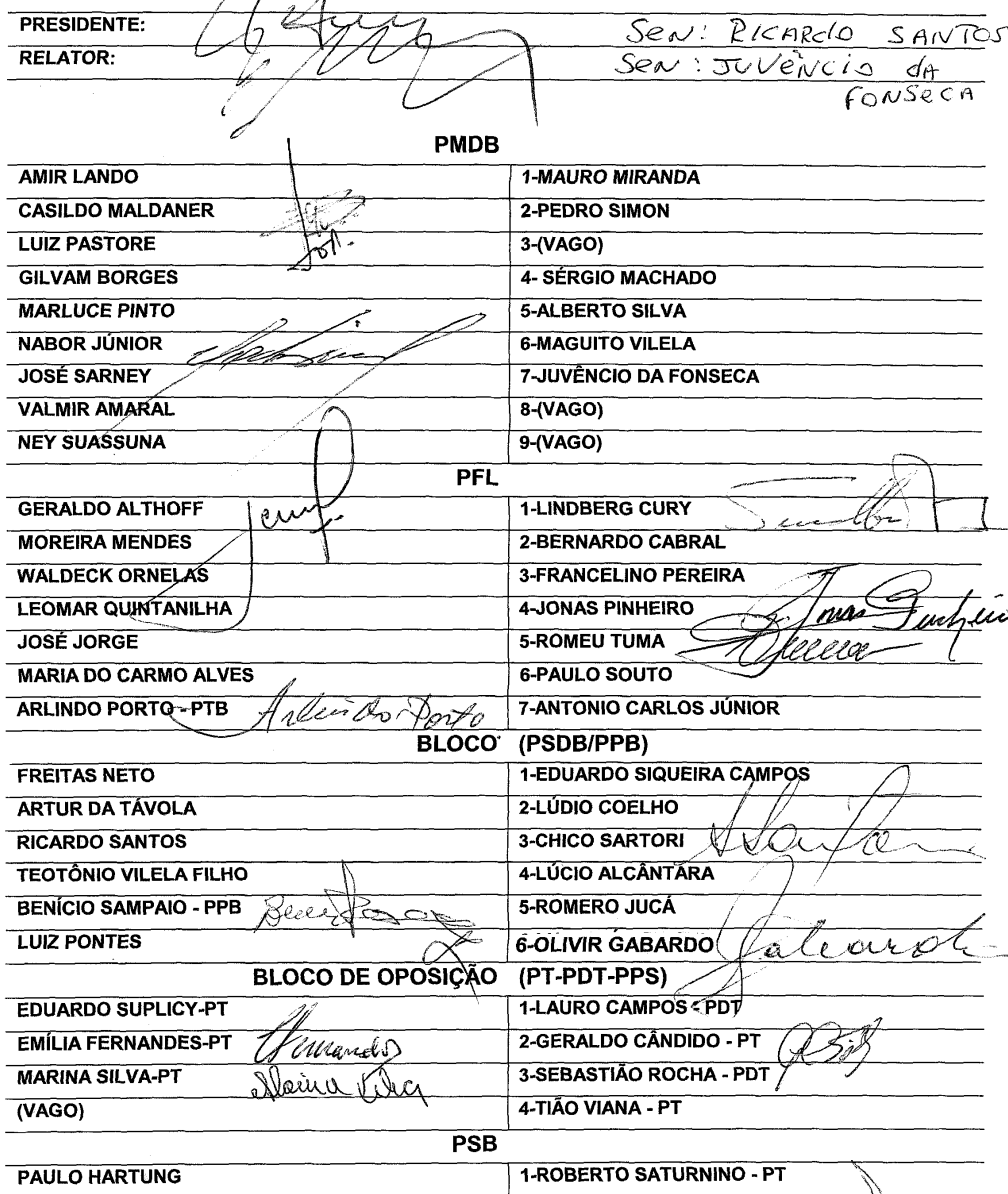 PRESIDENTE: Sen: RICARdo SANTOS
RELATOR: Sen: JUVêNCio dA
FONSeCA
PMDB
AMIR LANDO 1-MAURO MIRANDA
CASILDO MALDANER 2-PEDRO SIMON
LUIZ PASTORE 3-(VAGO)
GILVAM BORGES 4- SÉRGIO MACHADO
MARLUCE PINTO 5-ALBERTO SILVA
NABOR JÚNIOR 6-MAGUITO VILELA
JOSÉ SARNEY 7-JUVÊNCIO DA FONSECA
VALMIR AMARAL 8-(VAGO)
NEY SUASSUNA 9-(VAGO)
PFL
GERALDO ALTHOFF 1-LINDBERG CURY
MOREIRA MENDES 2-BERNARDO CABRAL
WALDECK ORNELAS 3-FRANCELINO PEREIRA
LEOMAR QUINTANILHA 4-JONAS PINHEIRO Jonas Pinheiro
JOSÉ JORGE 5-ROMEU TUMA
MARIA DO CARMO ALVES 6-PAULO SOUTO
ARLINDO PORTO -PTB Arlindo Porto 7-ANTONIO CARLOS JÚNIOR
BLOCO (PSDB/PPB)
FREITAS NETO 1-EDUARDO SIQUEIRA CAMPOS
ARTUR DA TÁVOLA 2-LÚDIO COELHO
RICARDO SANTOS 3-CHICO SARTORI
TEOTÔNIO VILELA FILHO 4-LÚCIO ALCÂNTARA
BENÍCIO SAMPAIO - PPB 5-ROMERO JUCÁ
LUIZ PONTES 6-OLIVIR GABARDO Gabardo
BLOCO DE OPOSIÇÃO (PT-PDT-PPS)
EDUARDO SUPLICY-PT 1-LAURO CAMPOS - PDT
EMÍLIA FERNANDES-PT Fernandes 2-GERALDO CÂNDIDO - PT
MARINA SILVA-PT Marina Silva 3-SEBASTIÃO ROCHA - PDT
(VAGO) 4-TIÃO VIANA - PT
PSB
PAULO HARTUNG 1-ROBERTO SATURNINO - PT